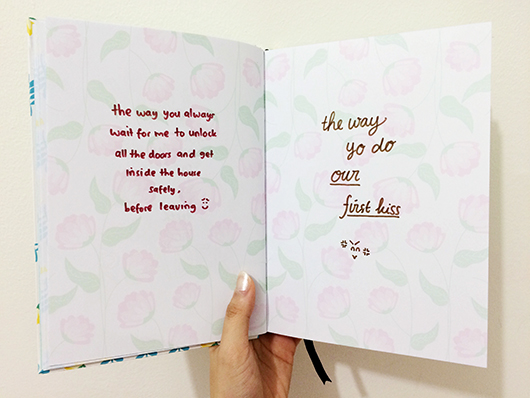 the way you always
wait for me to unlock
all the doors and get
inside the house
safely,
before leaving
the way
yo do
our
first kiss